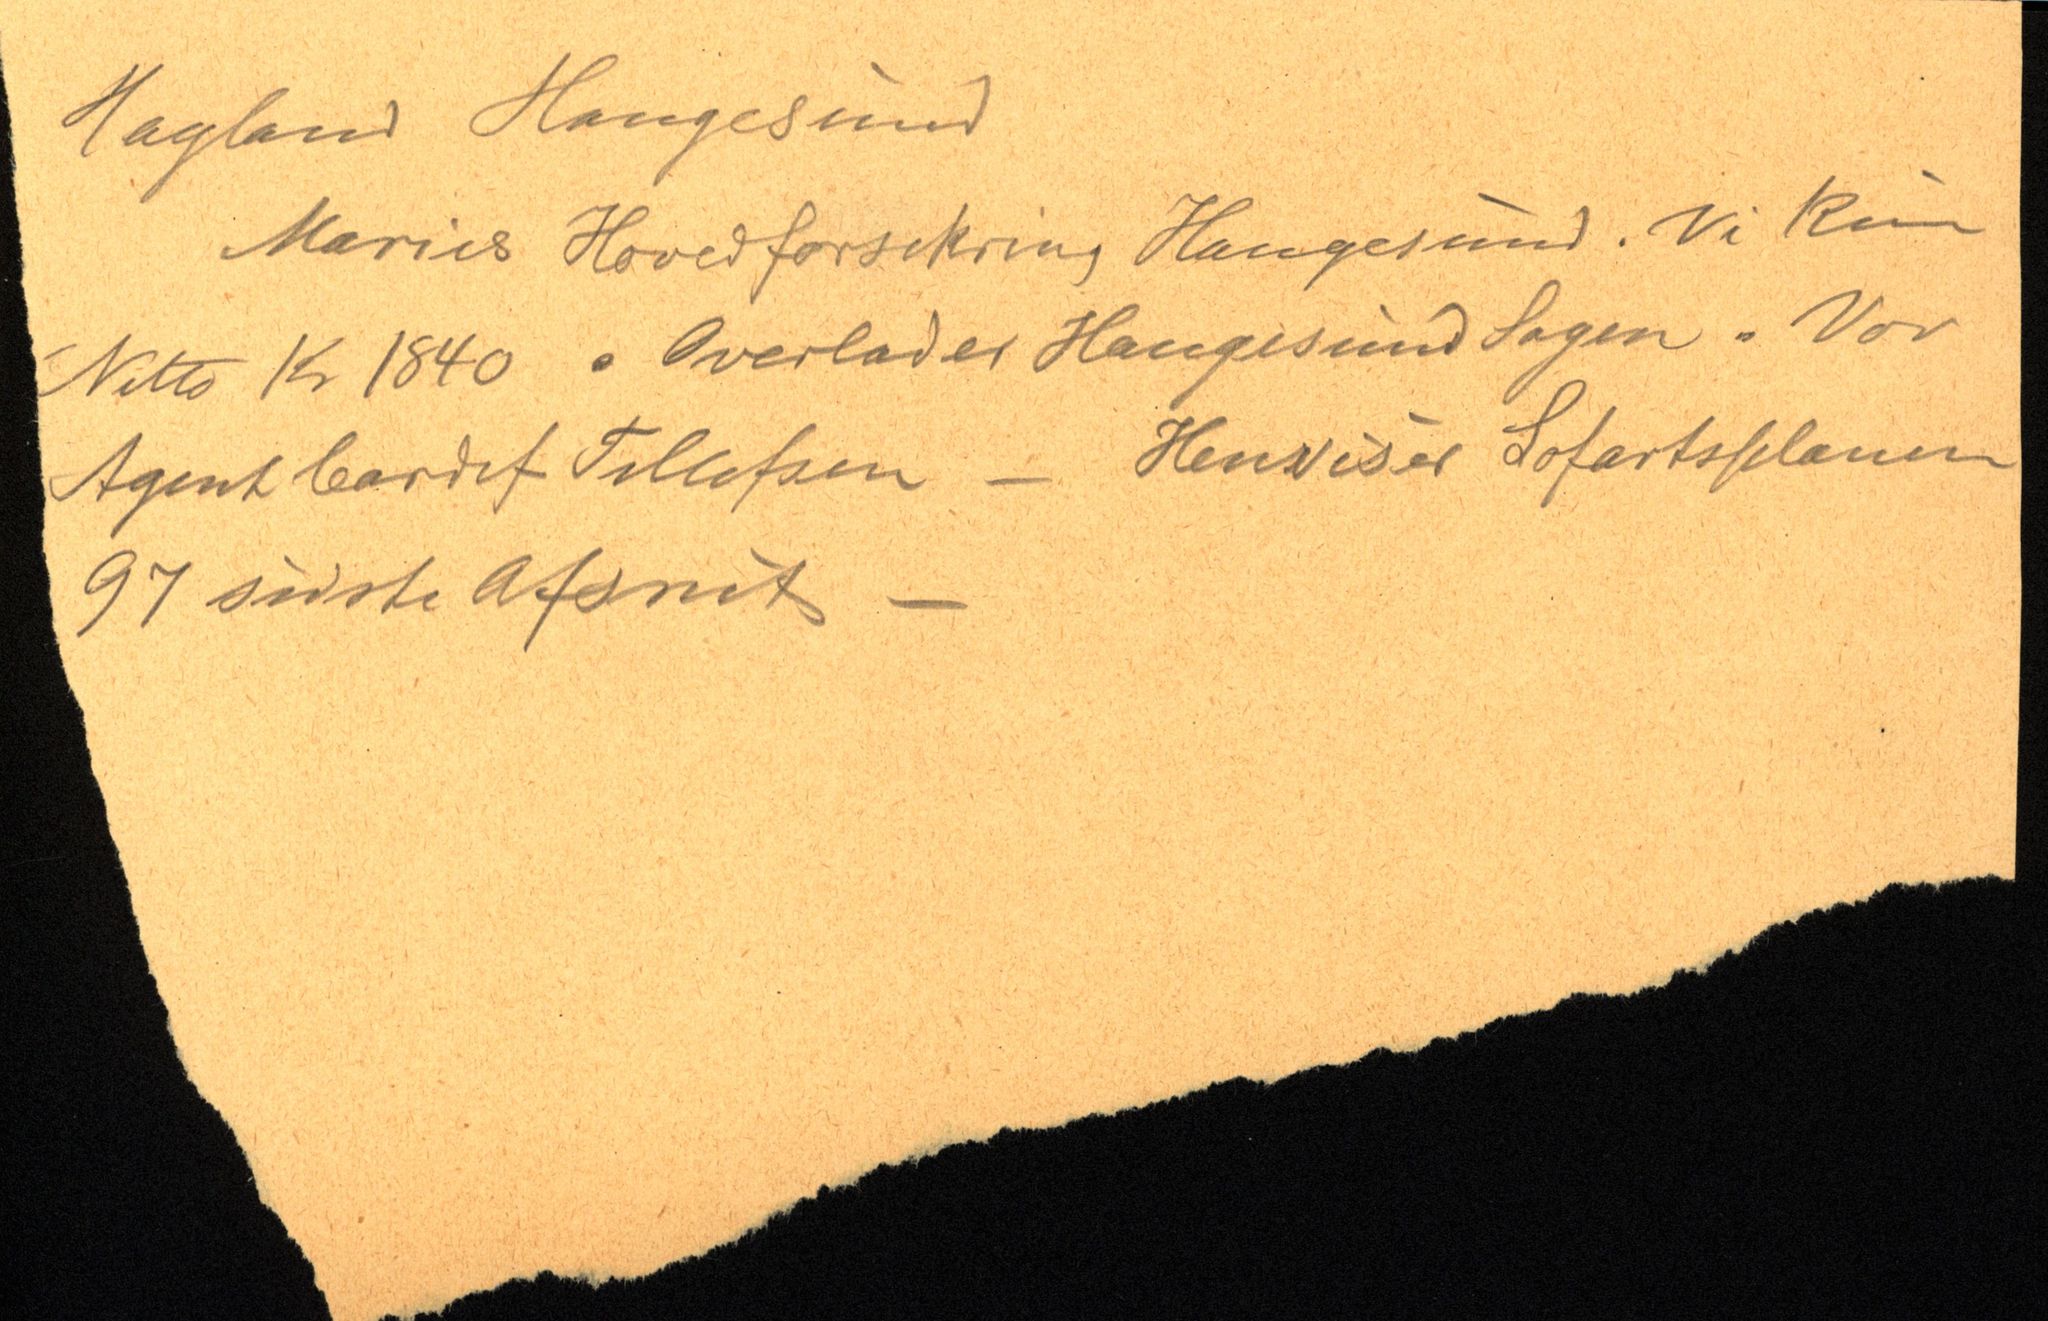 Hagland Haugesund
Maries Hovedforsikring Haugesund. Vi kun
Netto Kr 1840. Overlader Haugesund Sagen. Vor
Agent Cardif Tellefsen — Henviser Sofartsplanen
97 sidste Afsnit —